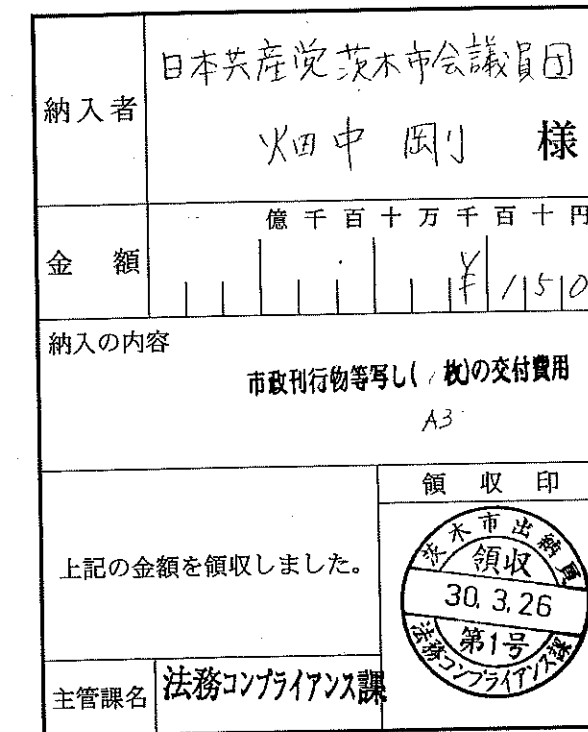 日本共産党茨木市会議員団
納入者
畑中 剛 様
億千百十万千百十円
金額
¥150
納入の内容
市政刊行物等写し(1枚)の交付費用
A3
領収印
上記の金額を領収しました。
茨木市出納員
領収
30.3.26
第1号
法務コンプライアンス課
主管課名 法務コンプライアンス課